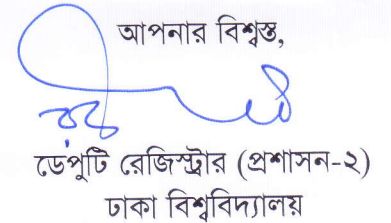 আপনার বিশ্বস্ত,
ডেপুটি রেজিস্ট্রার (প্রশাসন-২)
ঢাকা বিশ্ববিদ্যালয়